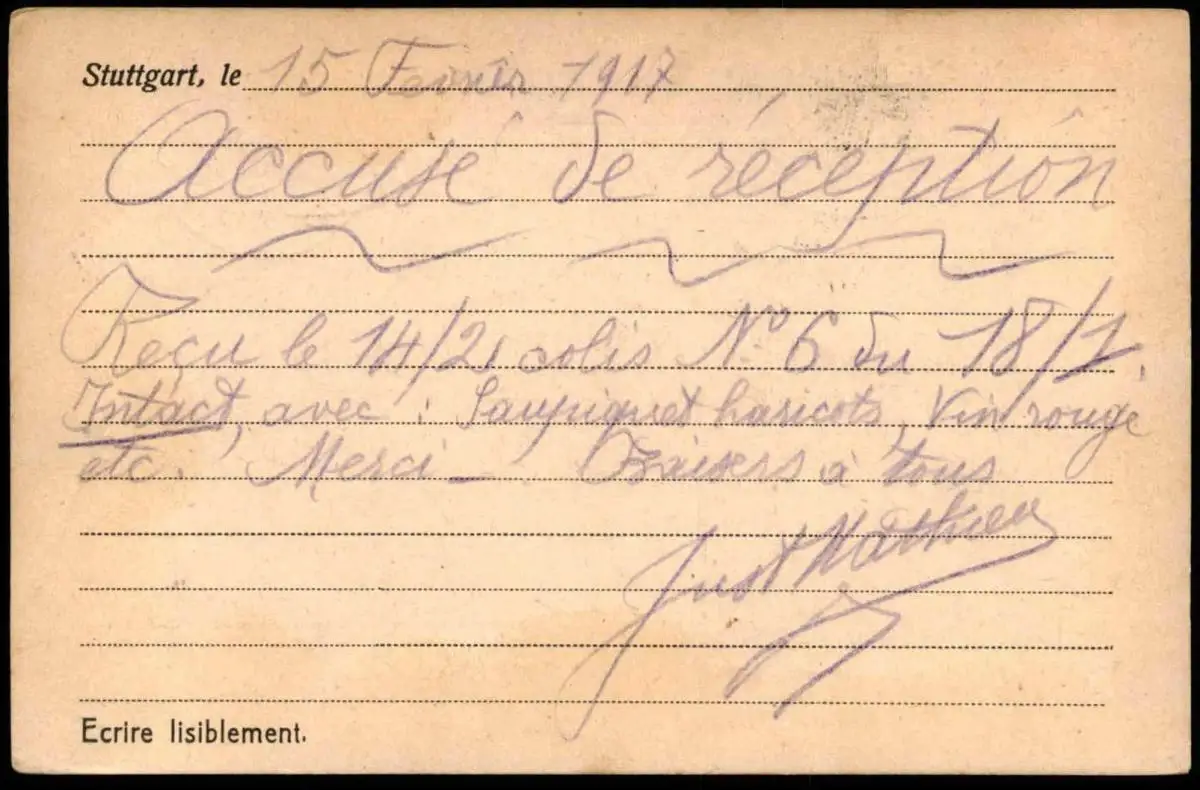 Stuttgart, le 15 Février 1917
Accusé de réception
Reçu le 14/2, colis N° 6 du 18/1.
Intact, avec : Saupiquet haricots, Vin rouge
etc. Merci _ Baisers à tous
Just Mathieu
Ecrire lisiblement.